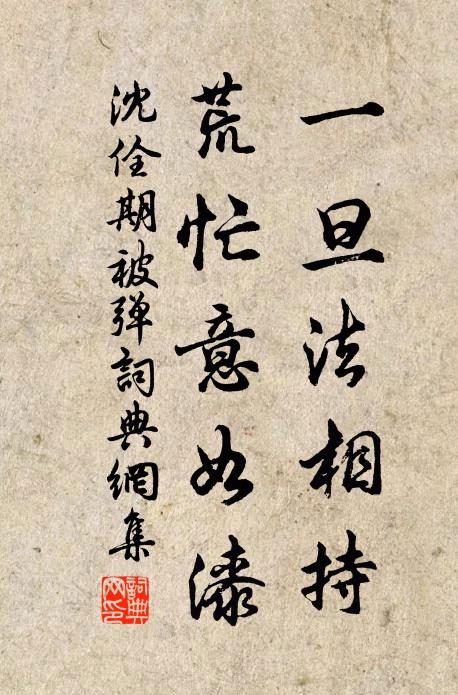 一旦法相持
荒忙意如漆
沈佺期被弹詞典網集
詞典網印